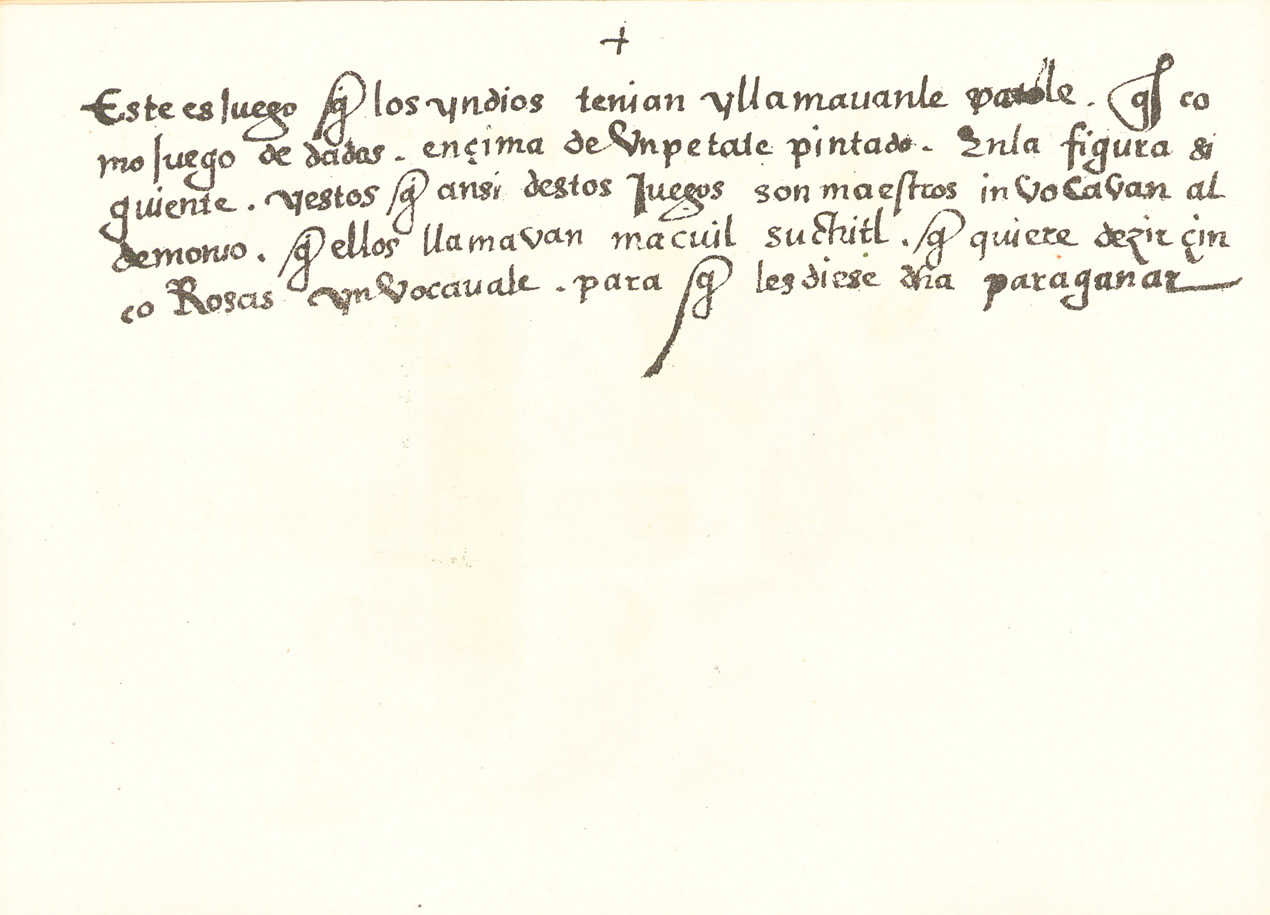 +
Este es Juego q̃ los yndios tenian y llamavanle patole. q̃l co
mo Juego de dados. ençima de Vn petate pintado. En la figura si
guiente. y estos q̃ ansi destos Juegos son maestros in Vocavan al
demonio. q̃ ellos llamavan macuil suchitl. q̃ quiere dezir çin
co Rosas yn Vocavale. para q̃ les diese dħa para ganar